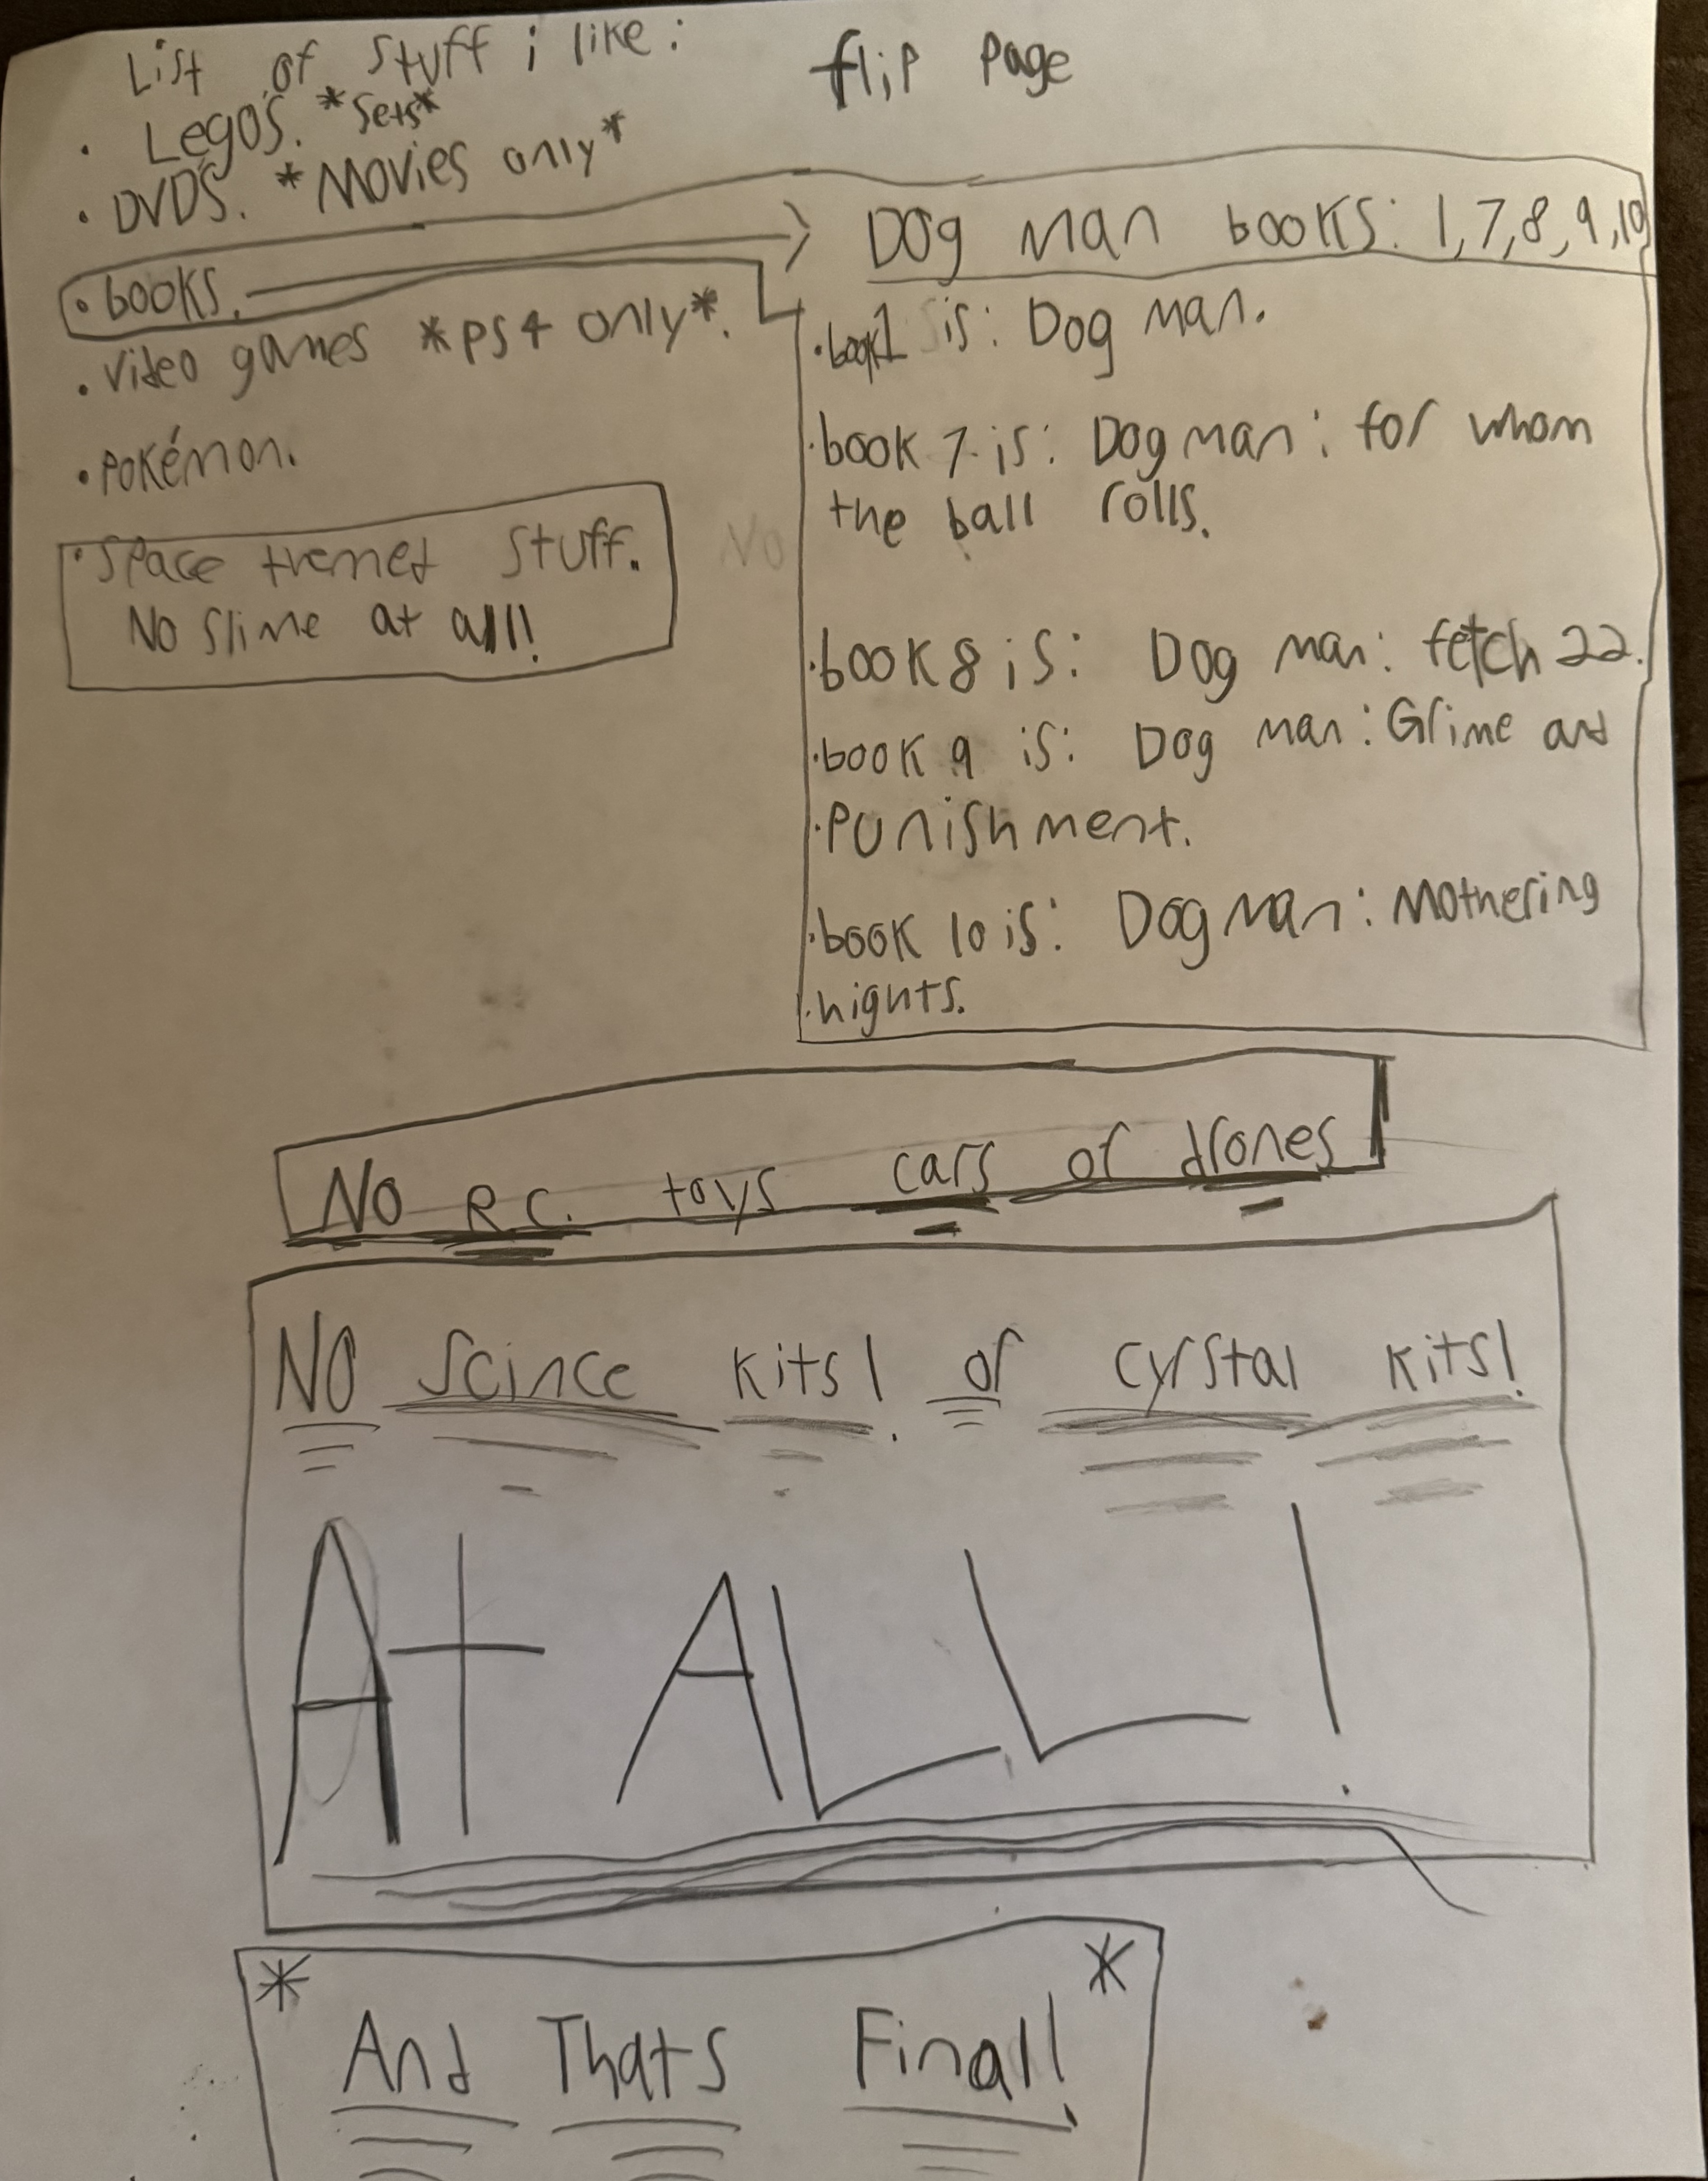 List of stuff i like:
flip Page
• Legos. *Sets*
• DVDS. *Movies only*
• books.
• Video games *ps4 only*.
• Pokémon.
• Space themed stuff.
No slime at all!
No
Dog man books: 1,7,8,9,10
• book 1 is: Dog man.
• book 7 is: Dog man: for whom
the ball rolls.
• book 8 is: Dog man: fetch 22.
• book 9 is: Dog man: Grime and
• Punishment.
• book 10 is: Dog man: Mothering
• hights.
No R.C. toys cars or drones
NO Scince kits! or cyrstal kits!
At ALL!
* *
And Thats Final!